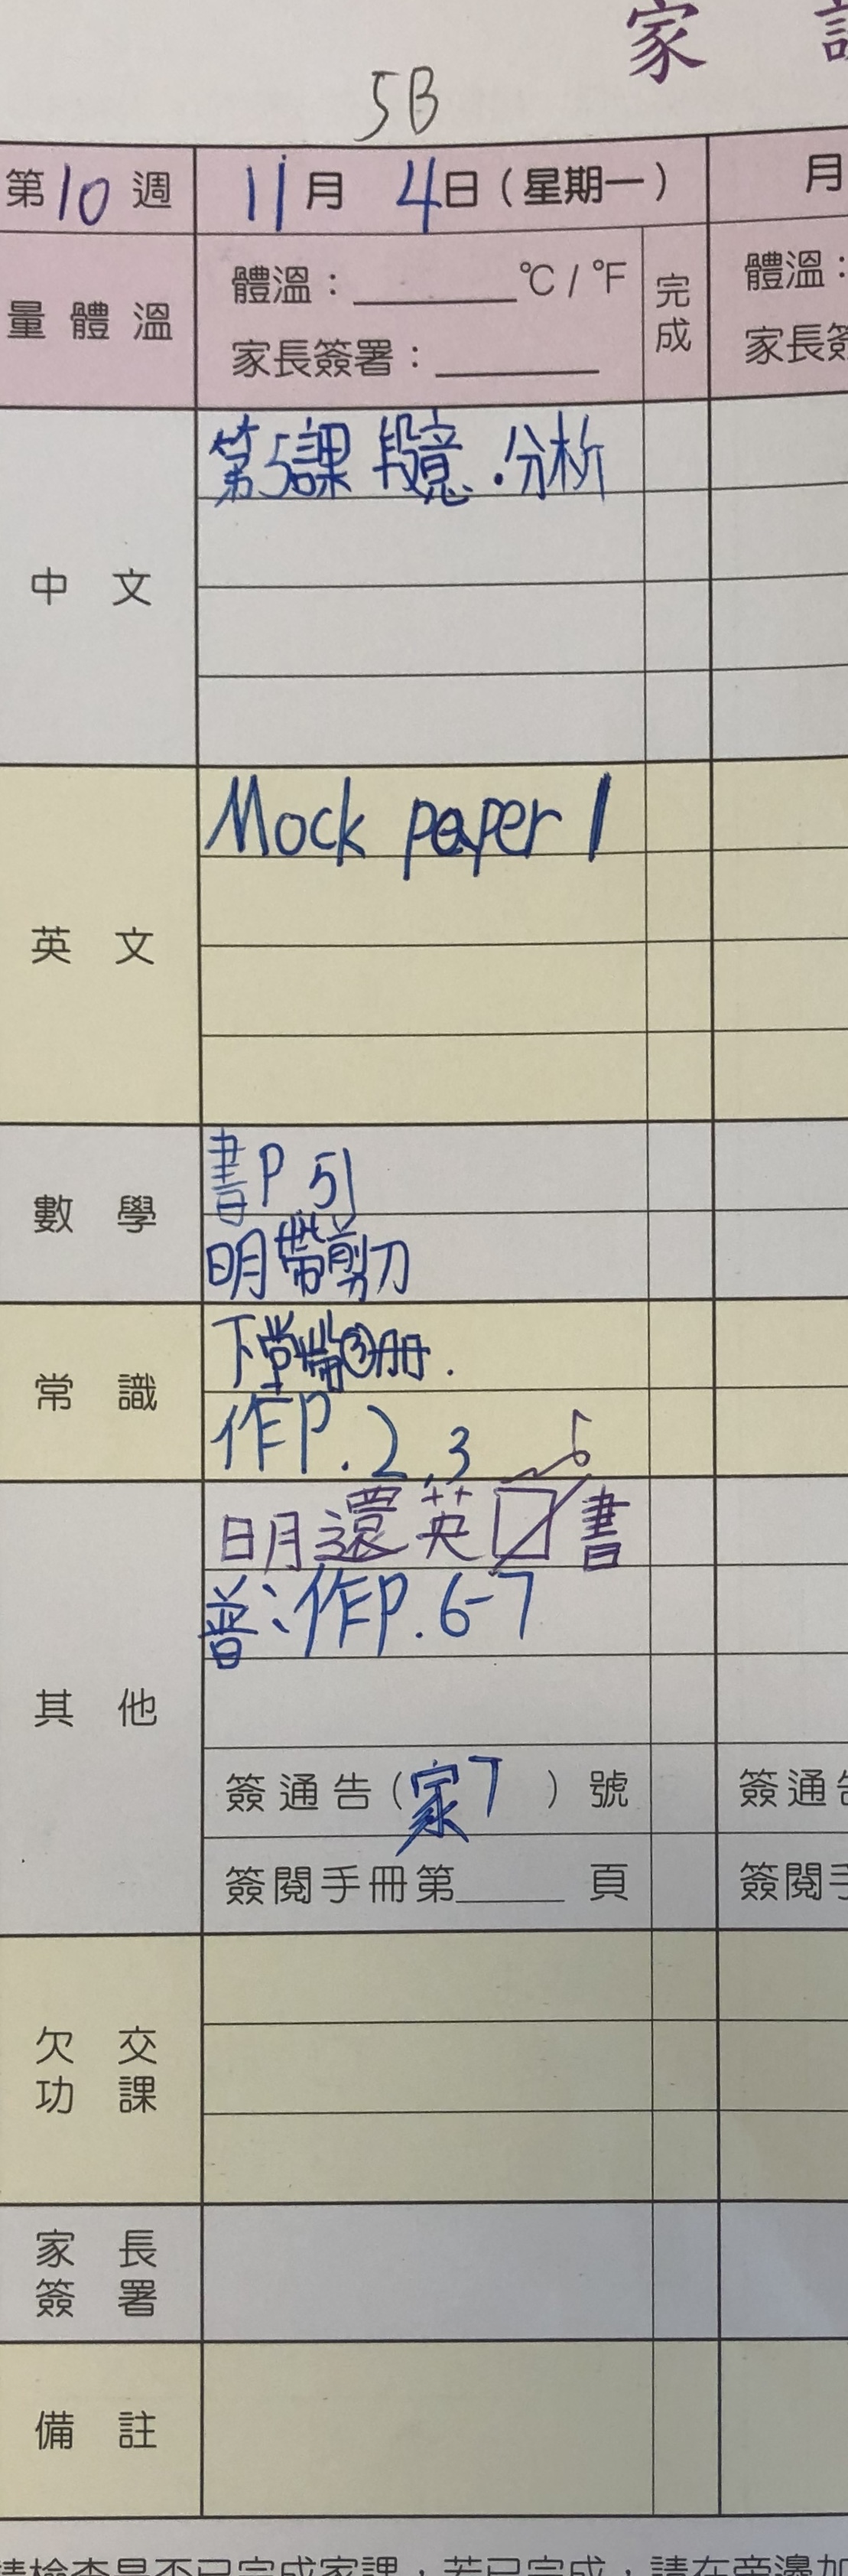 家
5B
第10週 11月 4日(星期一) 月
量體溫 體溫：______°C / °F 完成 體溫：
家長簽署：______ 家長簽
中文 第5課 段意．分析
英文 Mock paper 1
數學 書P 51
明帶剪刀
常識 下堂帶③冊.
作P. 2,3
其他 明還英書
普：作P. 6-7
簽通告(家7)號 簽通告
簽閱手冊第____頁 簽閱手
欠交功課
家長簽署
備註
請檢查是否已完成家課，若已完成，請在旁邊加